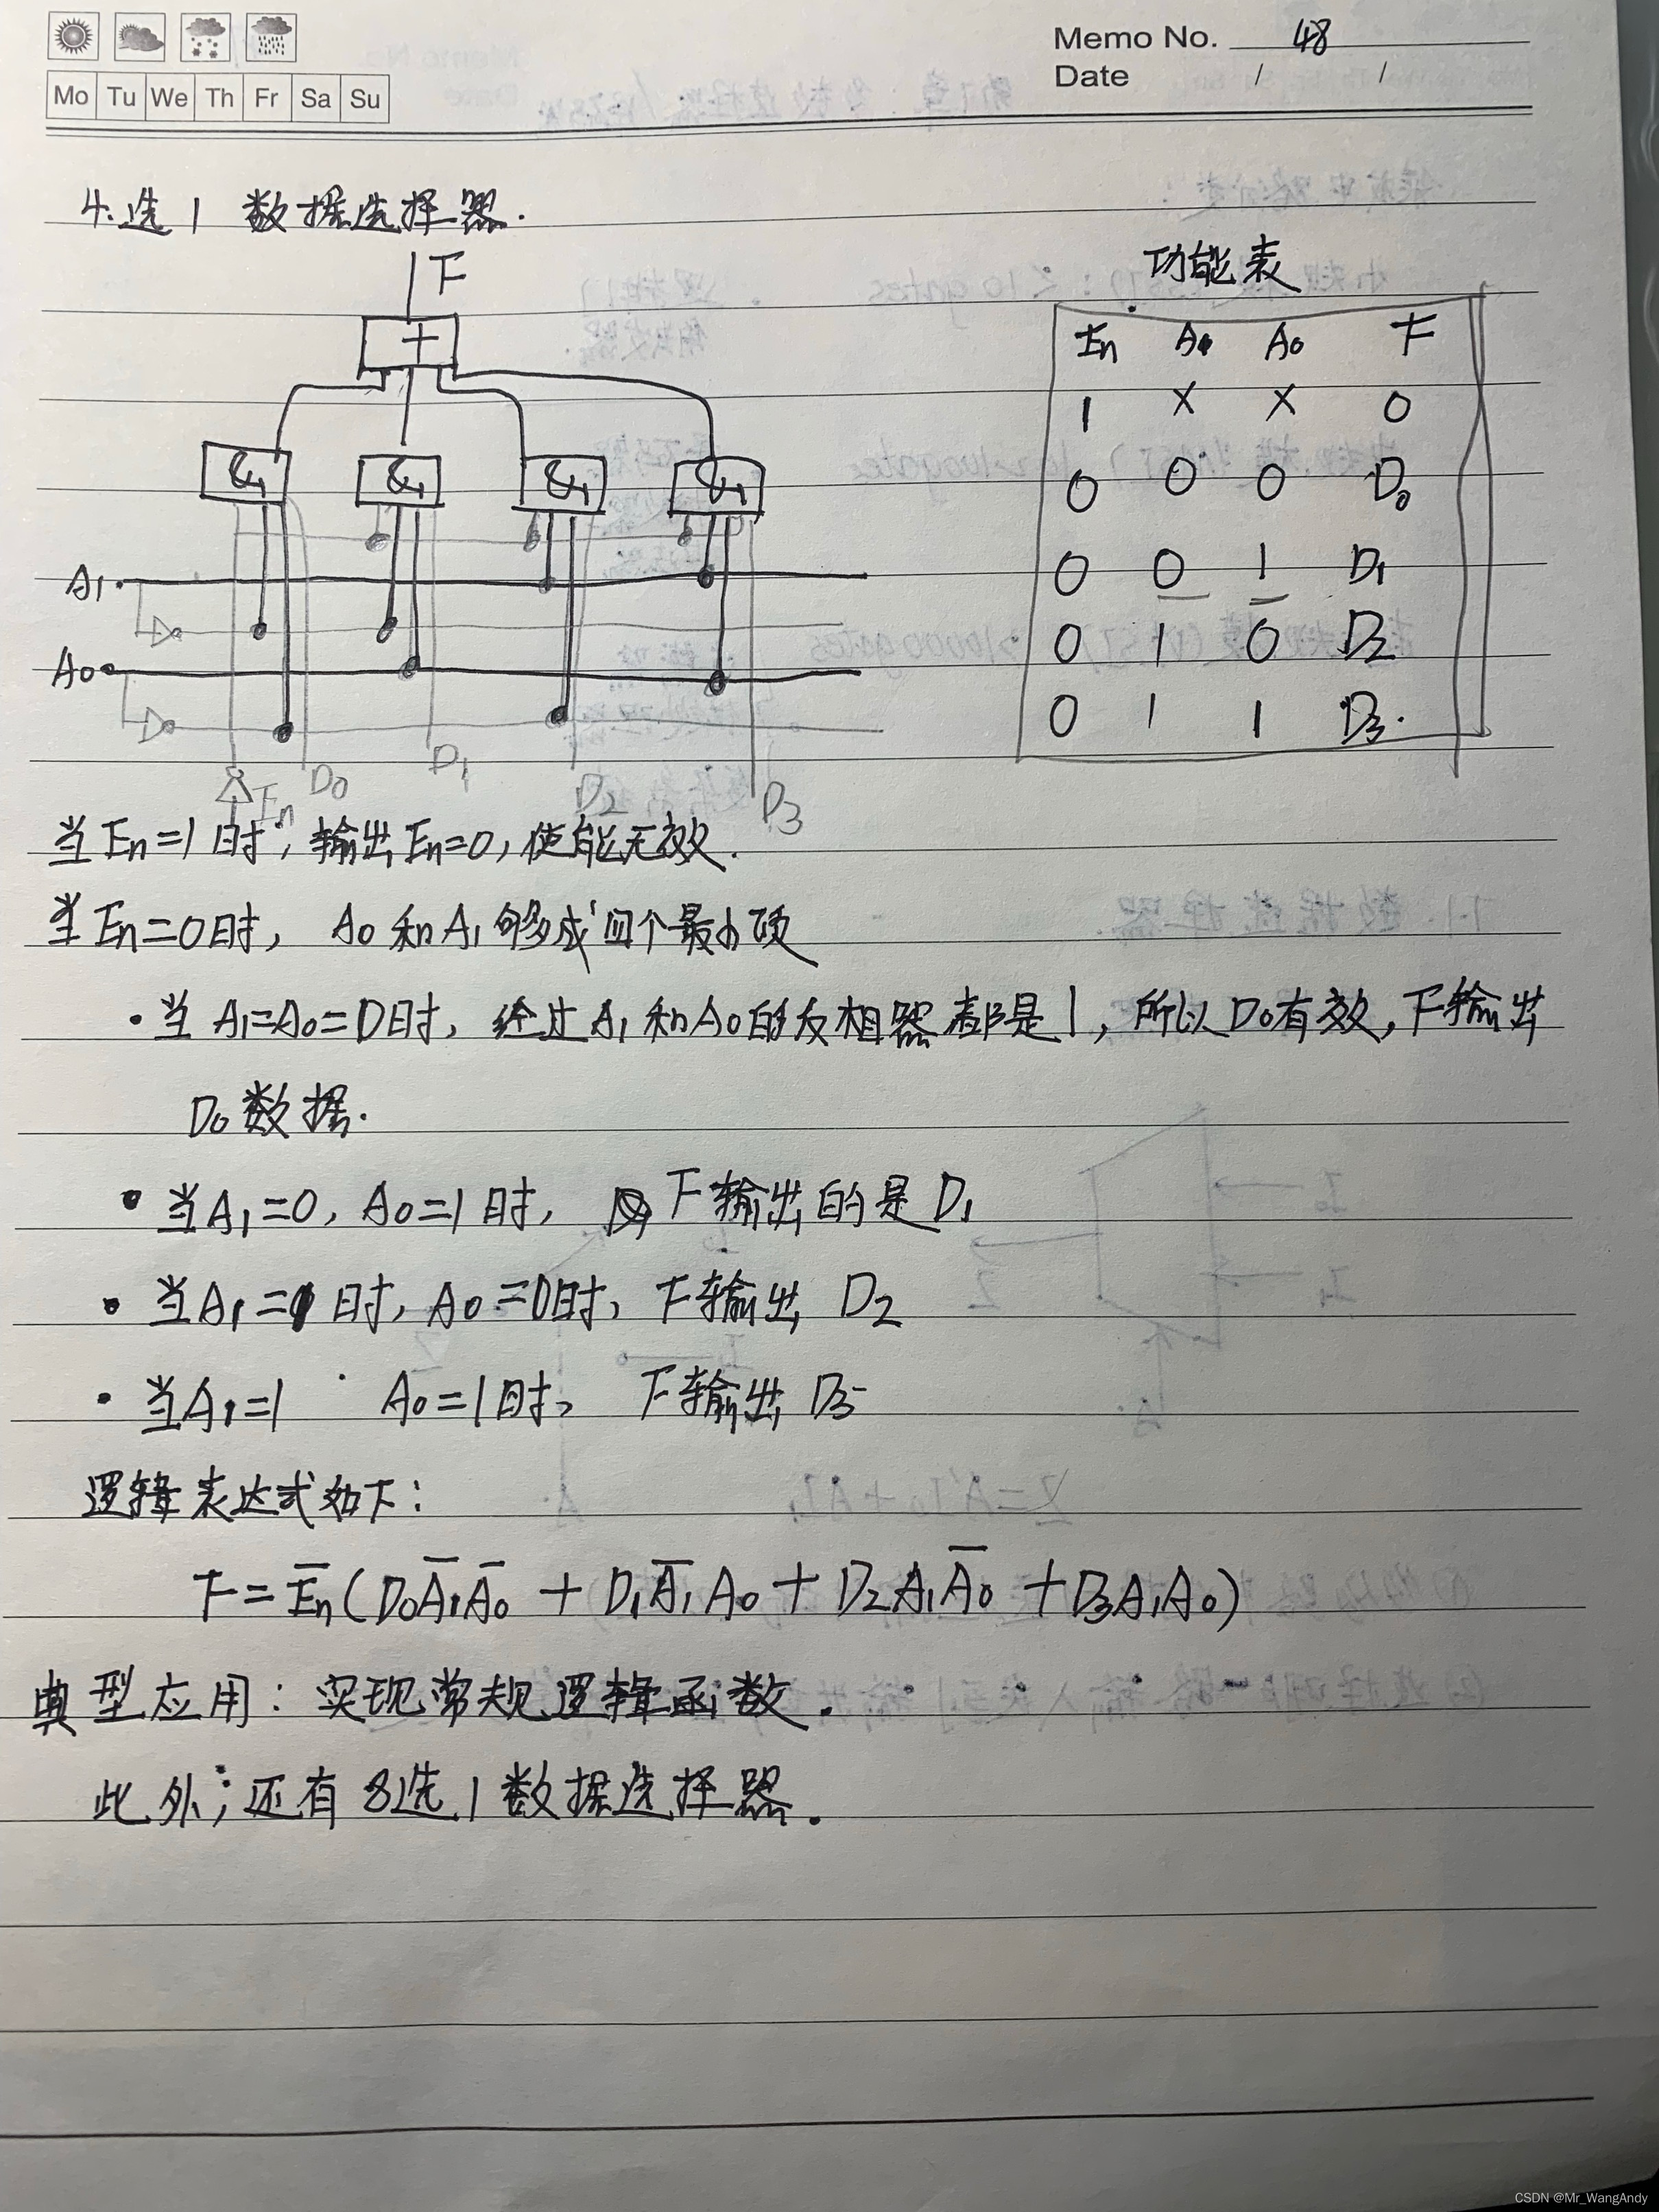 Memo No. 48
Date / /
Mo Tu We Th Fr Sa Su
4选1 数据选择器.
F
+
& & & &
A1
A0
En D0 D1 D2 D3
功能表
En A1 A0 F
1 × × 0
0 0 0 D0
0 0 1 D1
0 1 0 D2
0 1 1 D3.
当En=1时, 输出En=0, 使能无效.
当En=0时, A0和A1够成四个最小项
·当 A1=A0=0时, 经过A1和A0的反相器都是1, 所以D0有效, F输出
D0数据.
·当A1=0, A0=1时, F输出的是D1
·当A1=1时, A0=0时, F输出 D2
·当A1=1 A0=1时, F输出 D3
逻辑表达式如下:
F = E̅n(D0A̅1A̅0 + D1A̅1A0 + D2A1A̅0 + D3A1A0)
典型应用: 实现常规逻辑函数.
此外; 还有8选1数据选择器.
CSDN @Mr_WangAndy